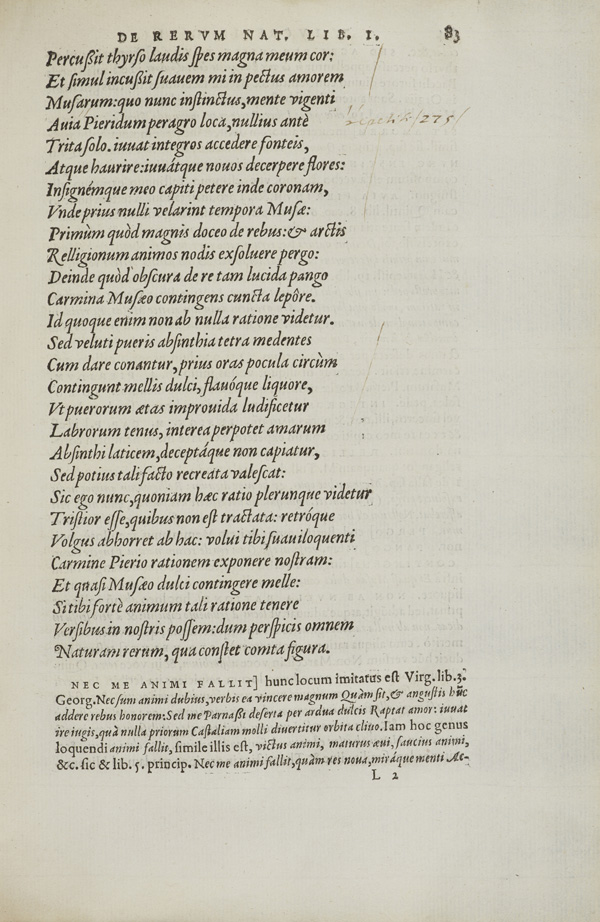 DE RERVM NAT. LIB. I. 83
Percußit thyrso laudis spes magna meum cor:
Et simul incußit suauem mi in pectus amorem
Musarum: quo nunc instinctus, mente vigenti
Auia Pieridum peragro loca, nullius antè
Trita solo. iuuat integros accedere fonteis,
Atque haurire: iuuátque nouos decerpere flores:
Insignémque meo capiti petere inde coronam,
Vnde prius nulli velarint tempora Musæ:
Primùm quòd magnis doceo de rebus: & arctis
Relligionum animos nodis exsoluere pergo:
Deinde quòd obscura de re tam lucida pango
Carmina Musæo contingens cuncta lepôre.
Id quoque enim non ab nulla ratione videtur.
Sed veluti pueris absinthia tetra medentes
Cum dare conantur, prius oras pocula circùm
Contingunt mellis dulci, flauóque liquore,
Vt puerorum ætas improuida ludificetur
Labrorum tenus, interea perpotet amarum
Absinthi laticem, deceptáque non capiatur,
Sed potius tali facto recreata valescat:
Sic ego nunc, quoniam hæc ratio plerunque videtur
Tristior esse, quibus non est tractata: retróque
Volgus abhorret ab hac: volui tibi suauiloquenti
Carmine Pierio rationem exponere nostram:
Et quasi Musæo dulci contingere melle:
Si tibi fortè animum tali ratione tenere
Versibus in nostris possem: dum perspicis omnem
Naturam rerum, qua constet comta figura.
NEC ME ANIMI FALLIT] hunc locum imitatus est Virg. lib. 3.
Georg. Nec sum animi dubius, verbis ea vincere magnum Quàm sit, & angustis hūc
addere rebus honorem: Sed me Parnassi deserta per ardua dulcis Raptat amor: iuuat
ire iugis, quà nulla priorum Castaliam molli diuertitur orbita cliuo. Iam hoc genus
loquendi animi fallit, simile illis est, victus animi, maturus æui, saucius animi,
&c. sic & lib. 5. princip. Nec me animi fallit, quàm res noua, miráque menti Ac-
L 2
275